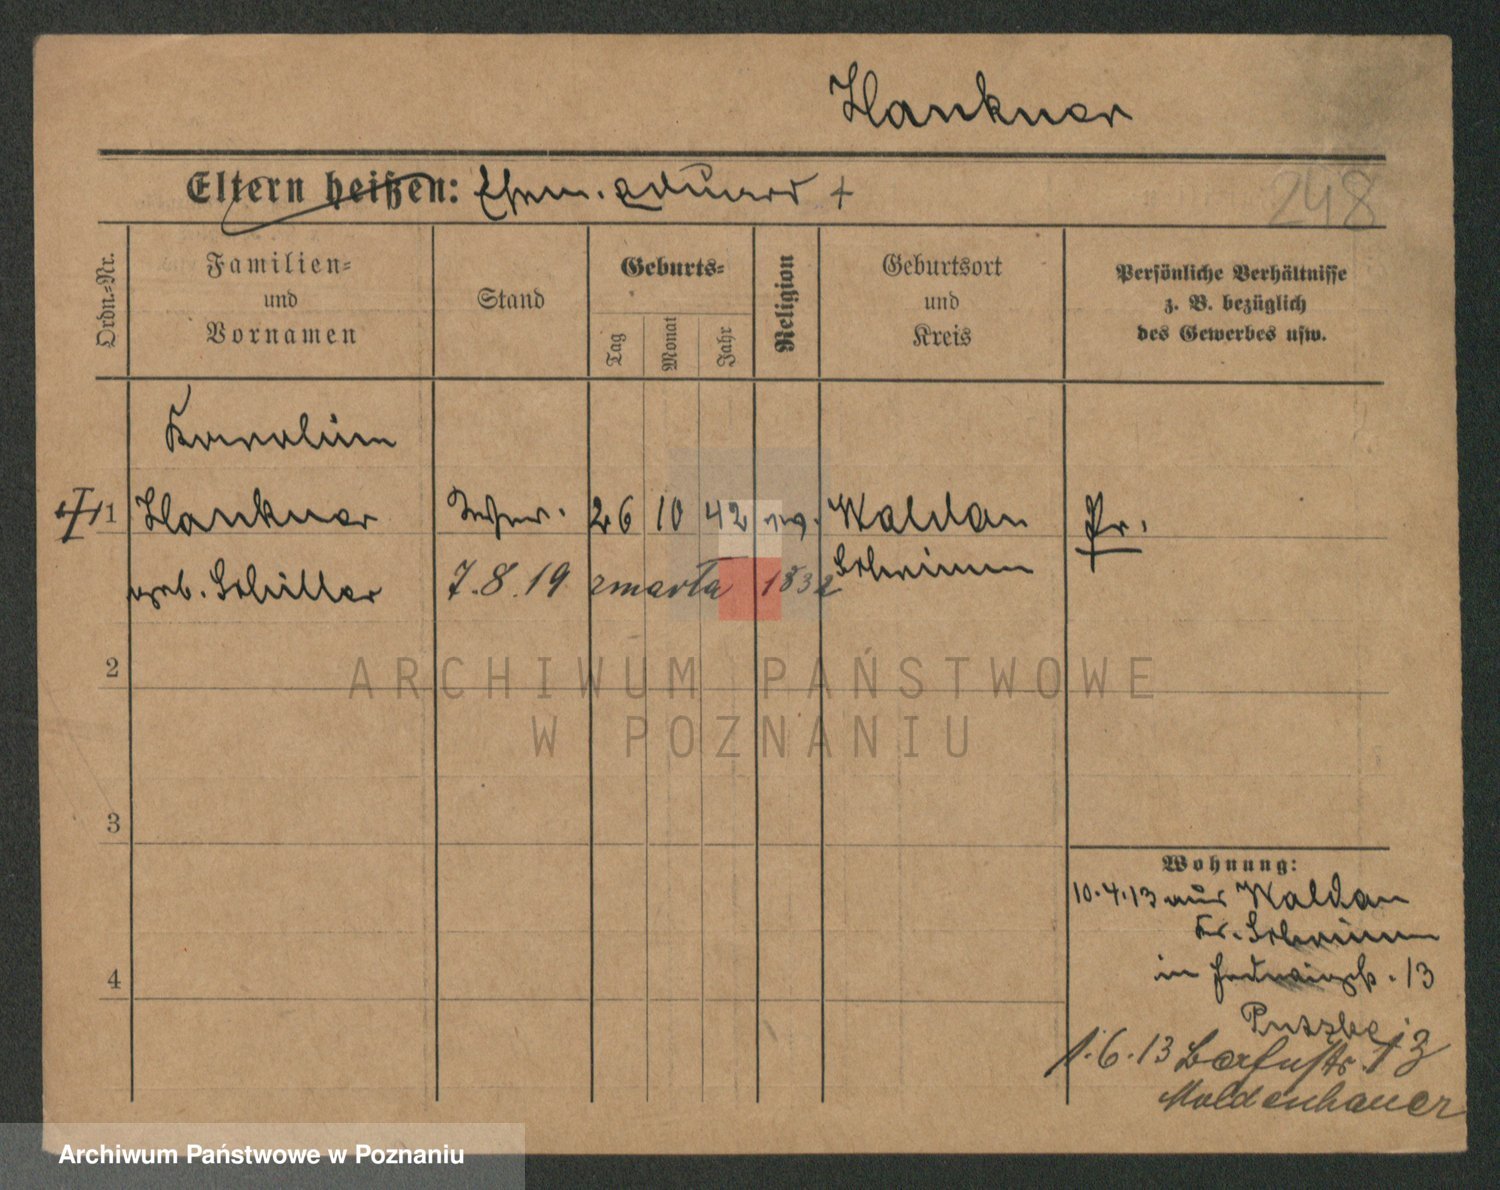 Hankner
Eltern heißen: Ehem. Eduard +
248
Ordn.-Nr.
Familien-
und
Vornamen
Stand
Geburts-
Tag
Monat
Jahr
Religion
Geburtsort
und
Kreis
Persönliche Verhältnisse
z. B. bezüglich
des Gewerbes usw.
1 Hankner 26 10 42 Waldau Pr.
geb. Schiller 7.8.19 zmarła 1832 Schrimm
2
ARCHIWUM PAŃSTWOWE
W POZNANIU
3
4
Wohnung:
10.4.13 aus Waldau
Kr. Schrimm
in 13
1.6.13 13
Moldenhauer
Archiwum Państwowe w Poznaniu